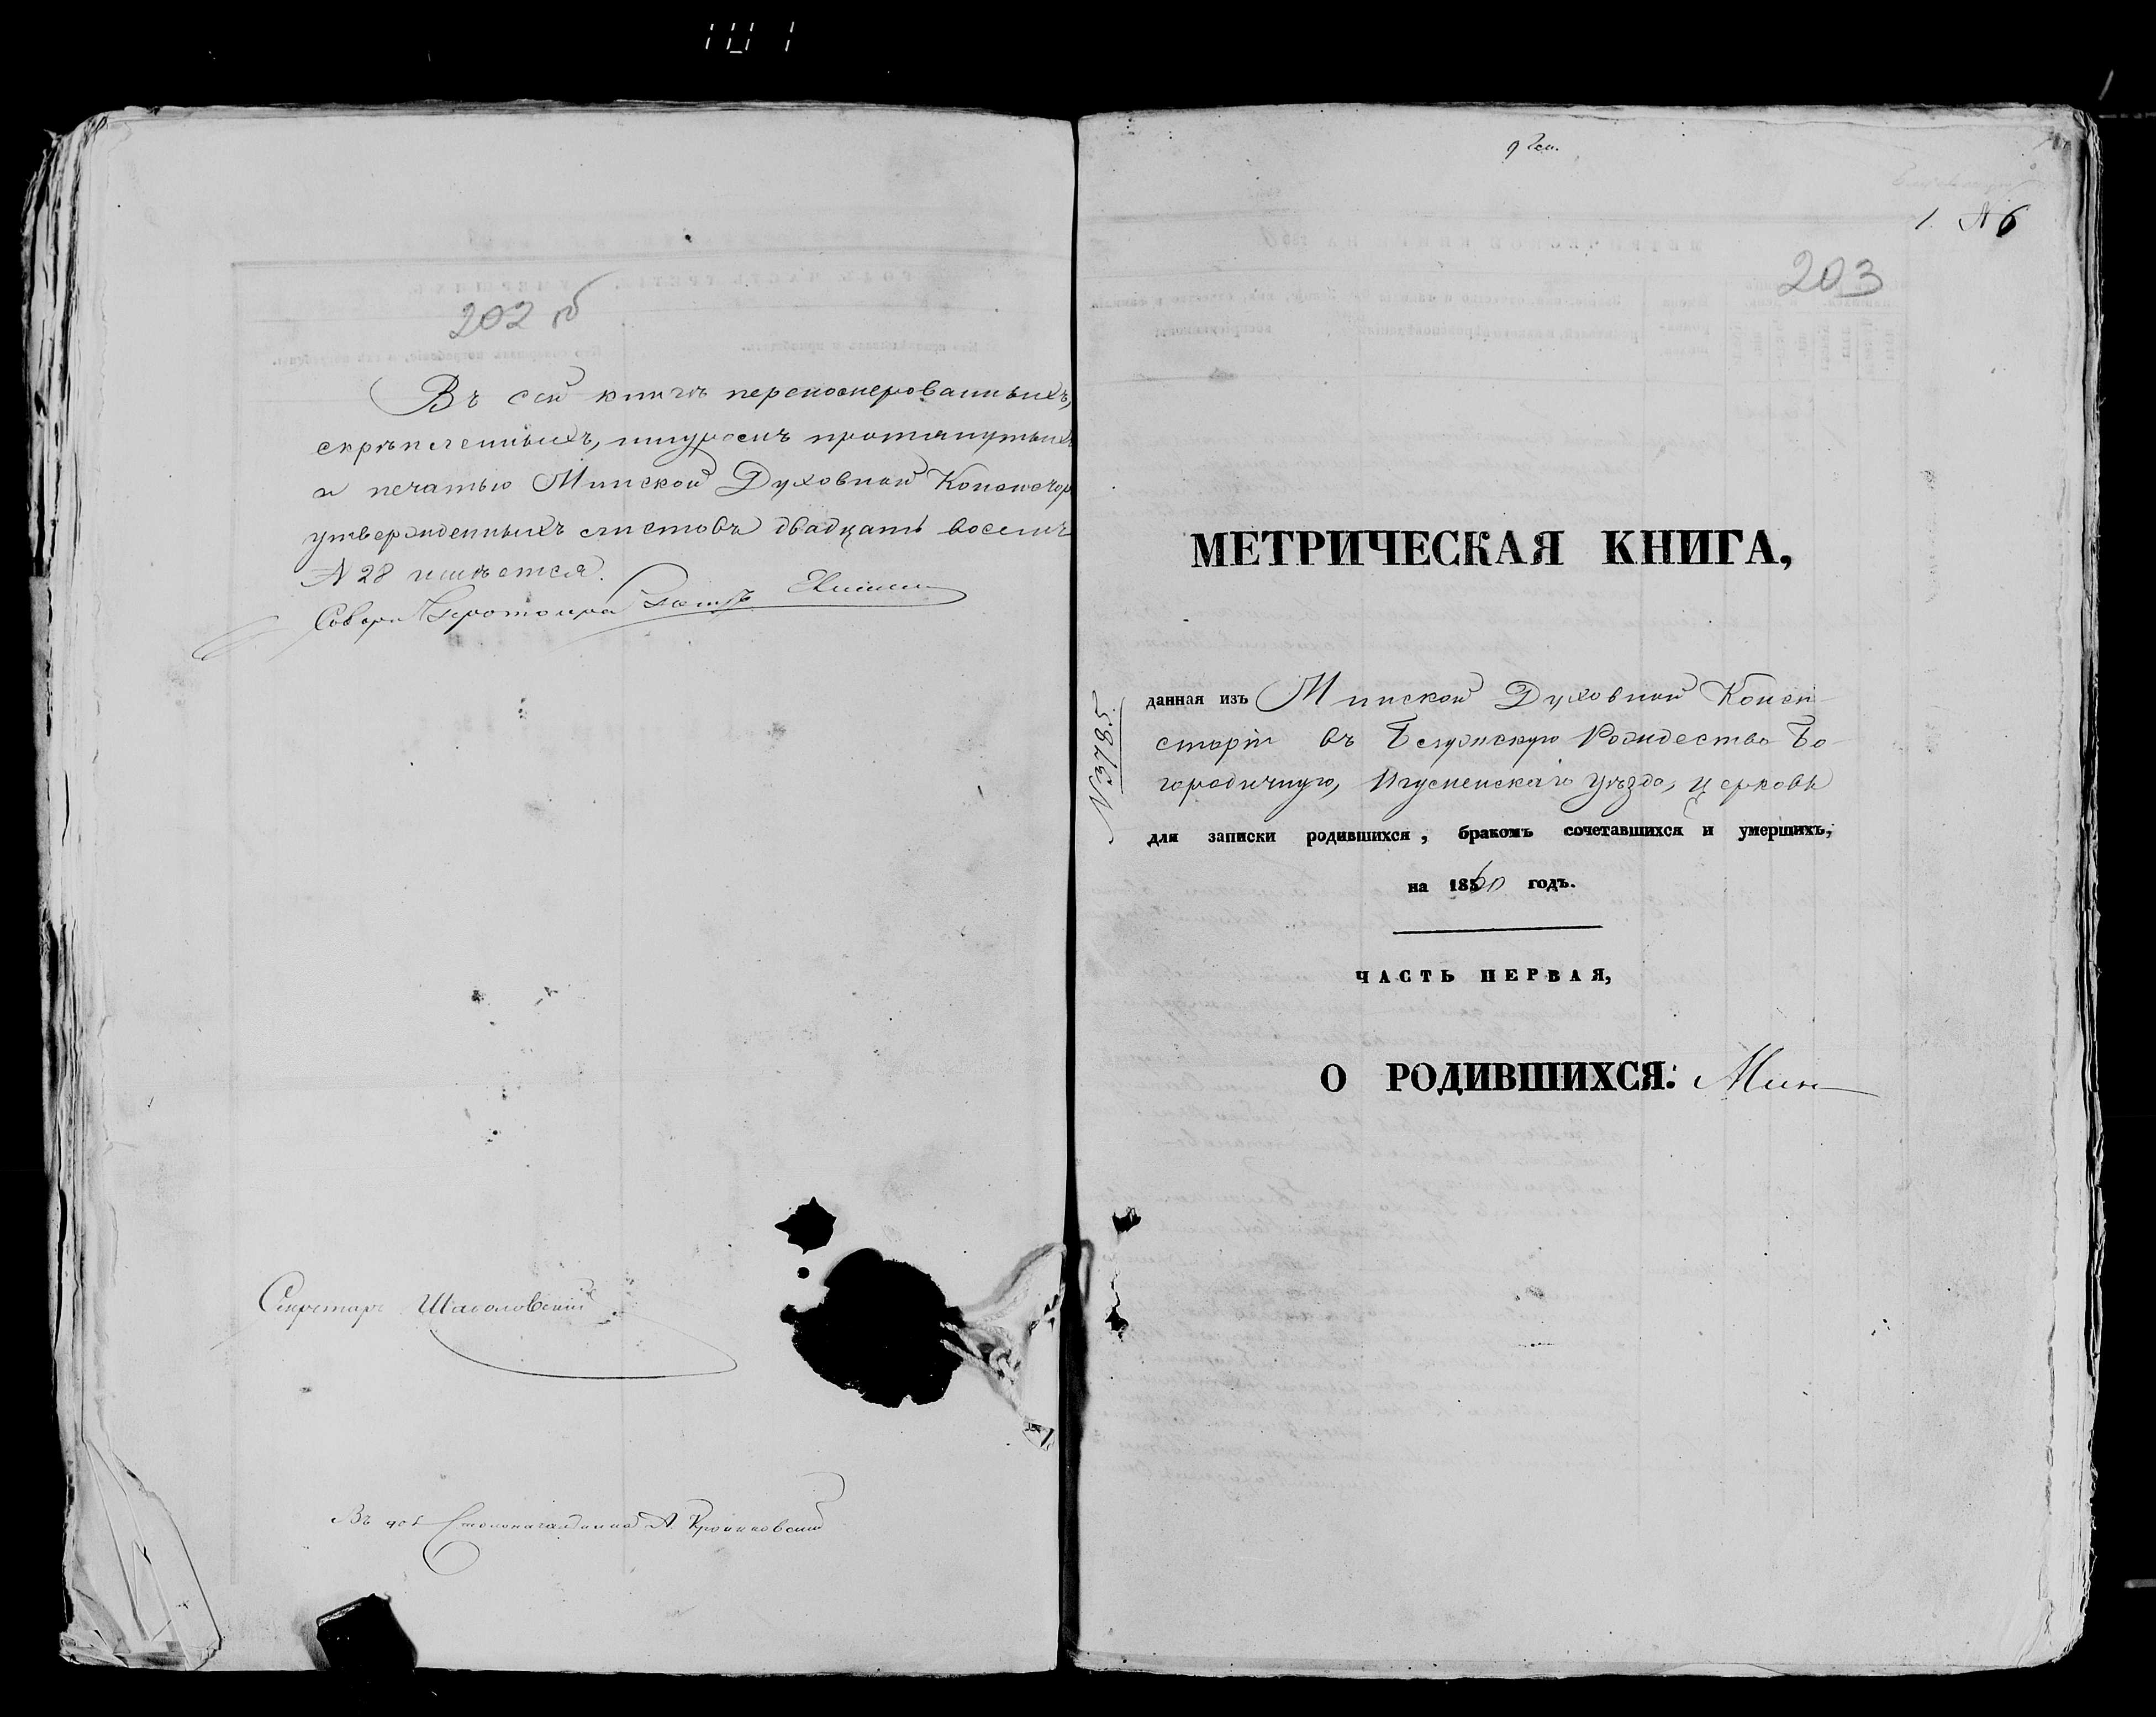 202 об
Въ сей книгѣ переномерованныхъ,
скрѣпленныхъ, шнуромъ протянутыхъ
и печатью Минской Духовной Консистор
утвержденныхъ листовъ двадцать восемь
№ 28 имѣется.
Секретарь Шаболовскій
Въ дол Столоначальника А. Кроликовскій
1 № 6
203
МЕТРИЧЕСКАЯ КНИГА,
данная изъ Минской Духовной Конси-
сторіи въ Белужскую Рождество Бо-
городичную, Игуменскаго уѣзда, церковь
для записки родившихся, бракомъ сочетавшихся и умершихъ,
на 1860 годъ.
ЧАСТЬ ПЕРВАЯ,
О РОДИВШИХСЯ. Мин
№ 3785